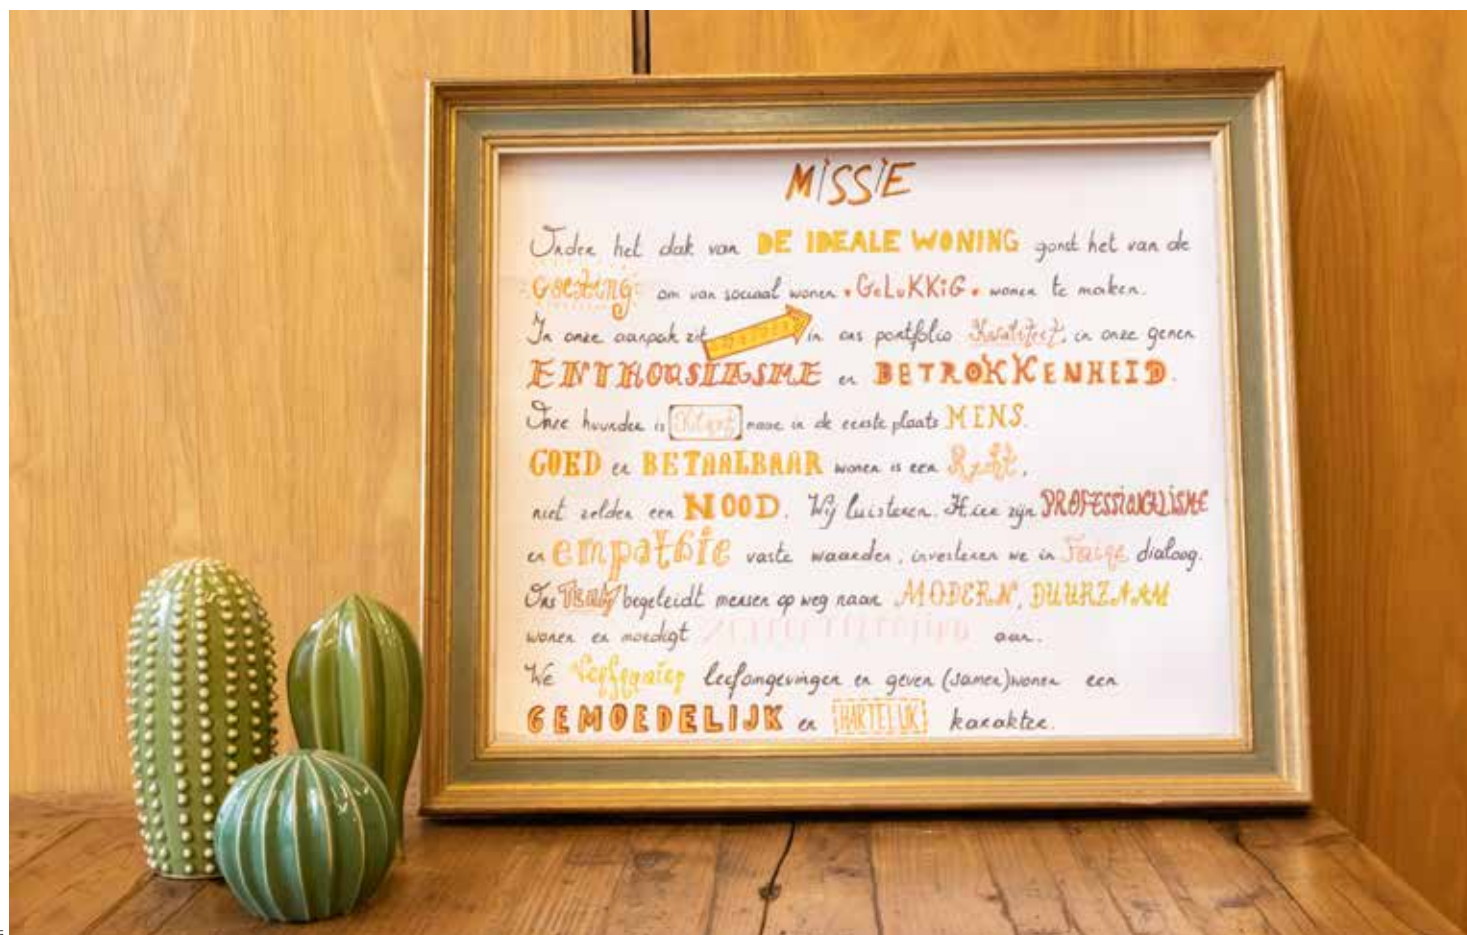 MISSIE
Onder het dak van DE IDEALE WONING gonst het van de
goesting om van sociaal wonen • GELUKKIG • wonen te maken.
In onze aanpak zit in ons portfolio Kwaliteit, in onze genen
ENTHOUSIASME en BETROKKENHEID.
Onze huurder is Klant maar in de eerste plaats MENS.
GOED en BETAALBAAR wonen is een Recht,
niet zelden een NOOD. Wij luisteren. Hier zijn PROFESSIONALISME
en empathie vaste waarden, investeren we in dialoog.
Ons TEAM begeleidt mensen op weg naar MODERN, DUURZAAM
wonen en moedigt aan.
We leefomgevingen en geven (samen)wonen een
GEMOEDELIJK en HARTELIJK karakter.